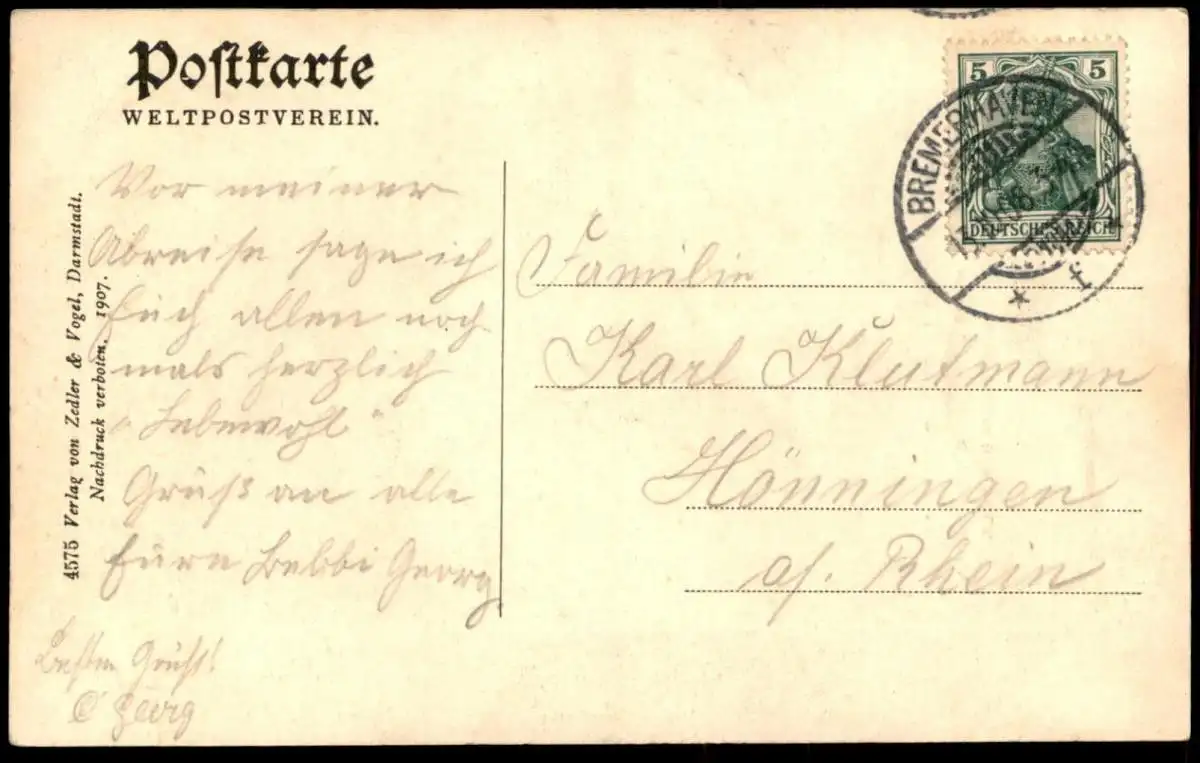 Postkarte
WELTPOSTVEREIN.
5 5
DEUTSCHES REICH
BREMERHAVEN
* f
4575 Verlag von Zedler & Vogel, Darmstadt.
Nachdruck verboten. 1907.
Vor meiner
Abreise sage ich
Euch allen noch
mals herzlich
"Lebewohl"
Gruß an alle
Eure Georg
Besten Gruß!
Georg
Familie
Karl Klutmann
Hönningen
a/. Rhein